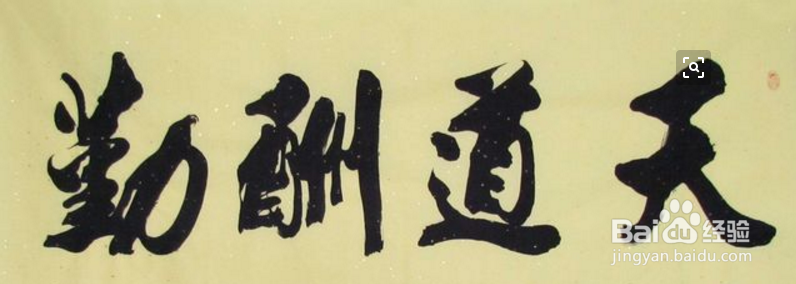 天道酬勤
Baidu经验
jingyan.baidu.com